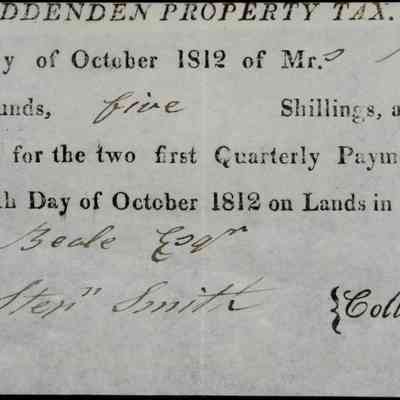 DDENDEN PROPERTY TAX.
y of October 1812 of Mr.s
unds, five Shillings, a
for the two first Quarterly Paym
h Day of October 1812 on Lands in
Beale Esqr
Stepn Smith {Coll